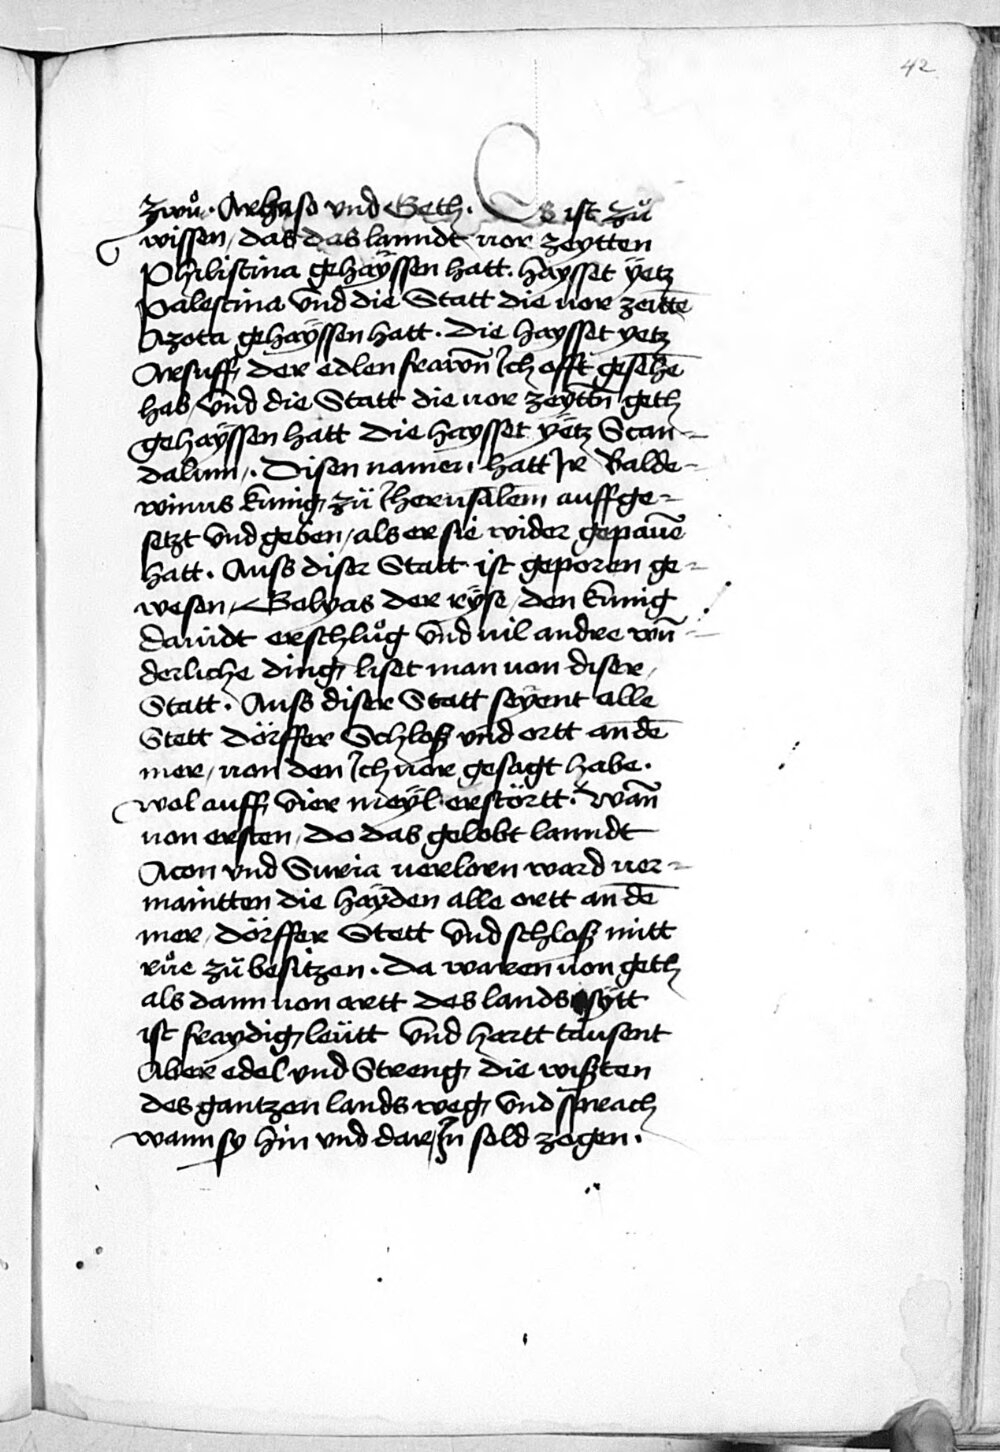 42
zwů. Arhaso vnd Geth. Es ist zů
wissen, das das lanndt uor zeytten
Philistina gehaÿssen hatt. haysset ÿetz
Palestina vnd die Statt die uor zeittē
Azota gehaÿssen hatt. Die haysset yetz
Arsuff, der edlen frawn̄ Ich offt gesehē
hab, vnd die Statt die uor zeyttn̄ geth
gehaÿssen hatt Die haysset ÿetz Scan-
dalium,. Disen namen hatt Jr Balde-
winus kunig, zü Iherusalem auffge-
setzt vnd geben, als er sie wider gepauē
hatt. Auss diser Statt ist geporen ge-
wesen, Golyas der ryse, den kunig
dauidt erschlůg vnd uil andre wū-
derliche ding, liset man uon diser,
Statt. Auss diser Statt seyent alle
Stett dörffer Schloß vnd ortt an dē
mer, uon den Ich uor gesagt habe.
wol auff, vier meyl. erstörtt. wan̄
uon ersten, do das gelobt lanndt
Acon vnd Suria uerlorn ward uer-
maintten die haÿden alle ortt an dē
mer, dörffer Stett vnd schloß mitt
růe zů besitzen. Da waren uon geth
als dann uon artt des lands sÿtt
ist fraydig, leütt vnd hartt tausent
Aber edel vnd Streng, die wißten
des gantzen lands weg, vnd sprach
wann sy hin vnd dar, In sold zogen.